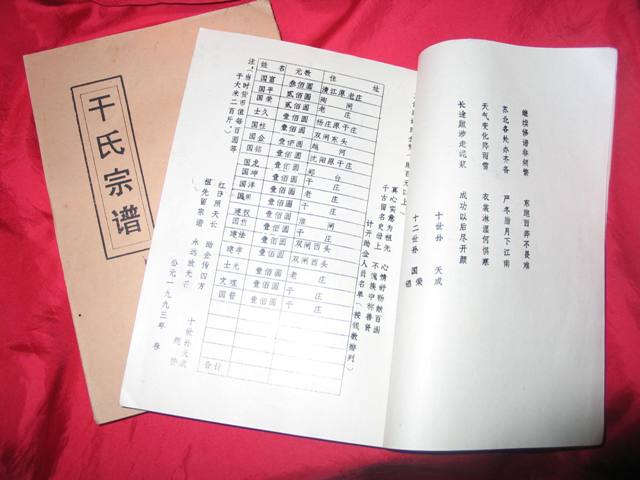 干氏宗谱
继续修谱非频繁 东跑西奔不畏难
苏北各处亦齐备 严冬腊月下江南
天气变化降雨雪 衣裳淋湿何惧寒
长途跋涉走泥泉 成功以后尽开颜
十世孙 天成
十二世孙 国荣
真心实意为祖先 心情舒畅献百圆
千古留名史母上 不愧族中称善贤
计开助金人员名单（按钱数排列）
姓名 元数 住址
国富 叁佰圆 清江原老庄
国平 贰佰圆 陶闸
国荣 贰佰圆 老庄
士久 壹佰圆 杨庄原干庄
国柱 壹佰圆 双闸东头
国金 壹佰圆 越河
国铭 壹佰圆 沈阳原干庄
国龙 壹佰圆
国坤 壹佰圆 干庄
国洋 壹佰圆 老庄
壹佰圆 干庄
建权 壹佰圆 闸
壹佰圆 双闸西头
壹佰圆 干庄
建孝 壹佰圆 双闸西头
士光 壹佰圆 干庄
文理 壹佰圆 干庄
国普 壹佰圆 干庄
合计
注：当时货币值每百圆等
于大米二百斤）
红日照天长 助金传四方
祖先留宗谱 永远放光芒
十世孙天成
公元一九九三年春